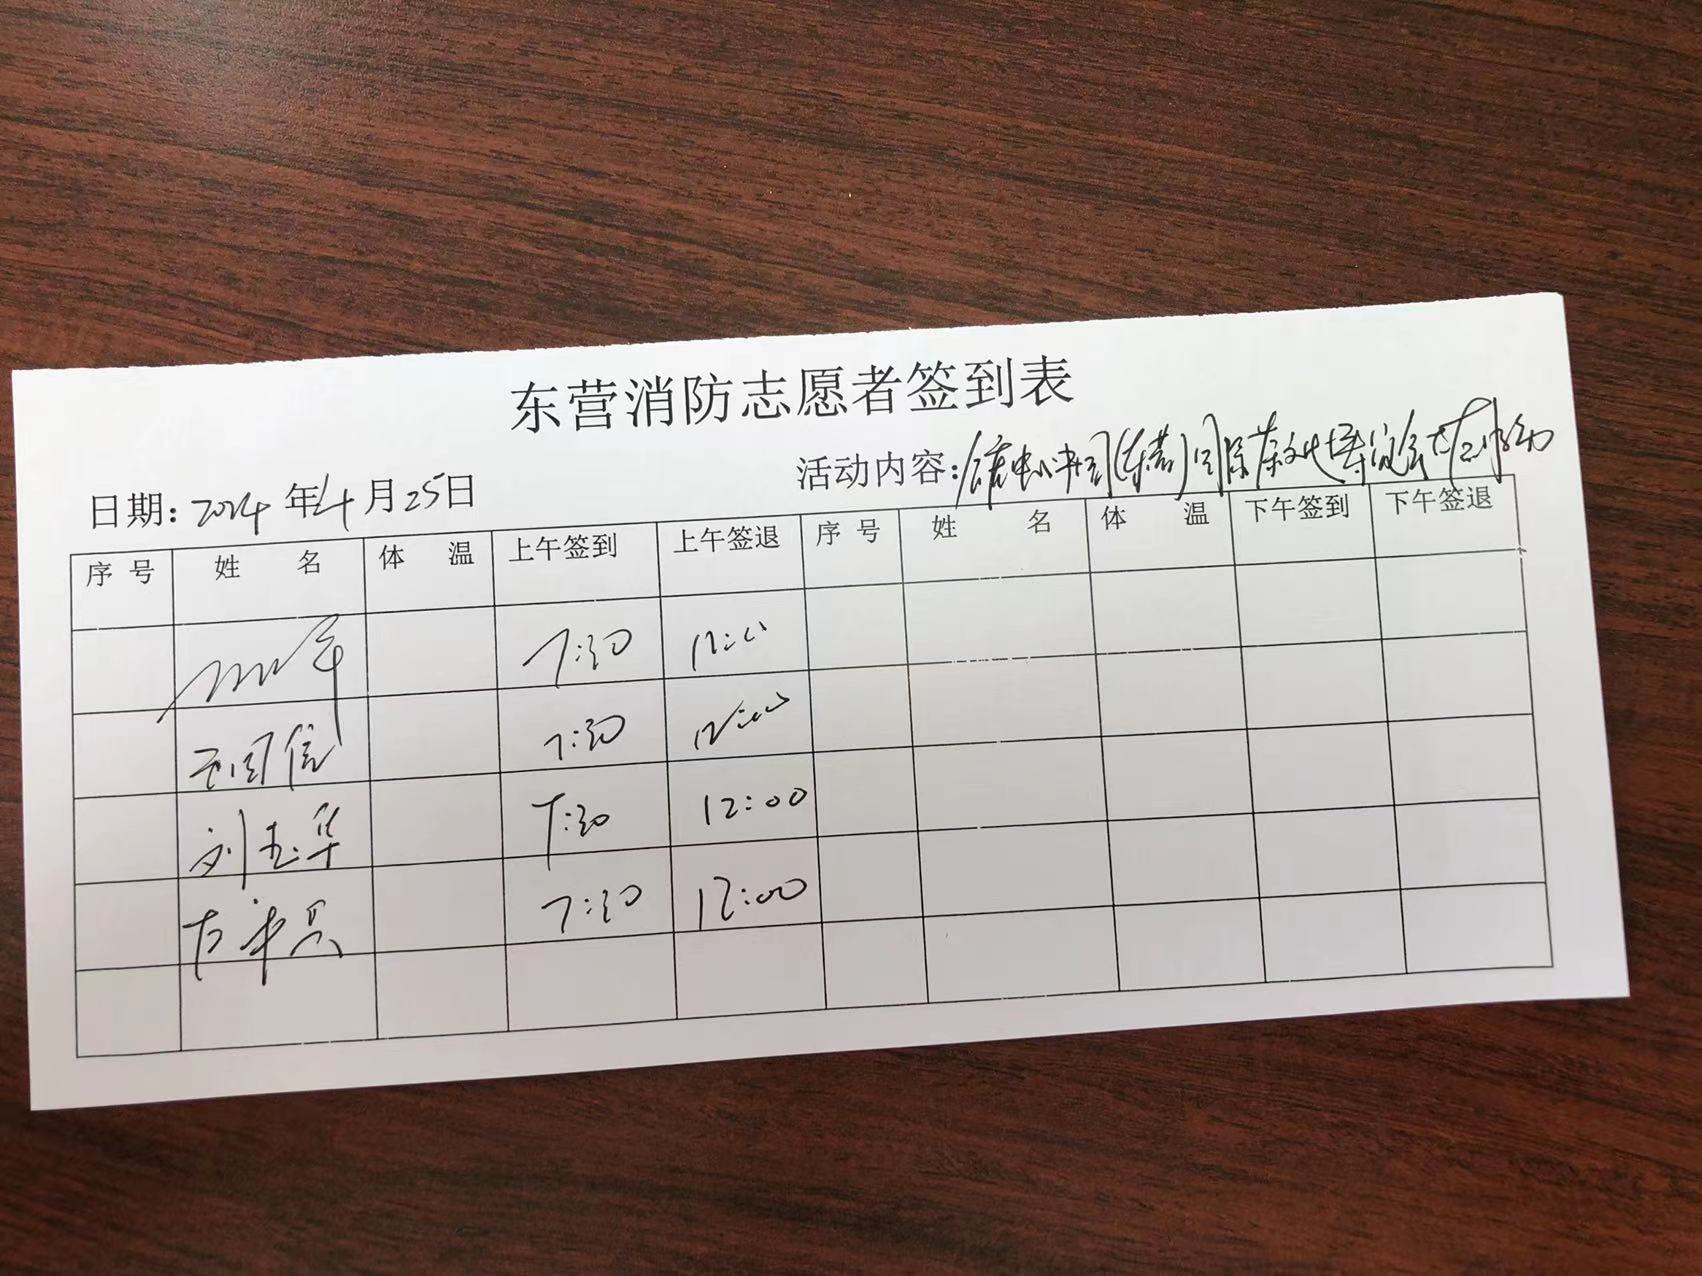 东营消防志愿者签到表
日期: 2024 年 4 月 25 日
活动内容: (东营)国际茶文化博览会
序号 姓名 体温 上午签到 上午签退 序号 姓名 体温 下午签到 下午签退
7:30 12:00
7:30 12:00
刘玉华 7:30 12:00
7:30 12:00